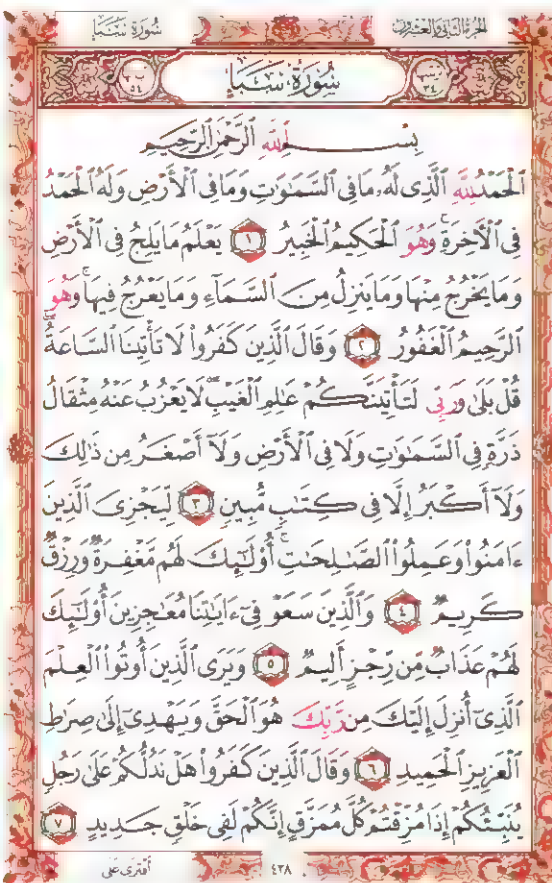 سُورَةُ سَبَإٍ
الجُزْءُ الثَّانِي وَالعِشْرُونَ
سُورَةُ سَبَإٍ
بِسْمِ ٱللَّهِ ٱلرَّحْمَٰنِ ٱلرَّحِيمِ
ٱلْحَمْدُ لِلَّهِ ٱلَّذِى لَهُۥ مَا فِى ٱلسَّمَٰوَٰتِ وَمَا فِى ٱلْأَرْضِ وَلَهُ ٱلْحَمْدُ
فِى ٱلْأَخِرَةِ ۚ وَهُوَ ٱلْحَكِيمُ ٱلْخَبِيرُ ١ يَعْلَمُ مَا يَلِجُ فِى ٱلْأَرْضِ
وَمَا يَخْرُجُ مِنْهَا وَمَا يَنزِلُ مِنَ ٱلسَّمَآءِ وَمَا يَعْرُجُ فِيهَا ۚ وَهُوَ
ٱلرَّحِيمُ ٱلْغَفُورُ ٢ وَقَالَ ٱلَّذِينَ كَفَرُوا۟ لَا تَأْتِينَا ٱلسَّاعَةُ ۖ
قُلْ بَلَىٰ وَرَبِّى لَتَأْتِيَنَّكُمْ عَٰلِمِ ٱلْغَيْبِ ۖ لَا يَعْزُبُ عَنْهُ مِثْقَالُ
ذَرَّةٍ فِى ٱلسَّمَٰوَٰتِ وَلَا فِى ٱلْأَرْضِ وَلَآ أَصْغَرُ مِن ذَٰلِكَ
وَلَآ أَكْبَرُ إِلَّا فِى كِتَٰبٍ مُّبِينٍ ٣ لِّيَجْزِىَ ٱلَّذِينَ
ءَامَنُوا۟ وَعَمِلُوا۟ ٱلصَّٰلِحَٰتِ ۚ أُو۟لَٰٓئِكَ لَهُم مَّغْفِرَةٌ وَرِزْقٌ
كَرِيمٌ ٤ وَٱلَّذِينَ سَعَوْ فِىٓ ءَايَٰتِنَا مُعَٰجِزِينَ أُو۟لَٰٓئِكَ
لَهُمْ عَذَابٌ مِّن رِّجْزٍ أَلِيمٌ ٥ وَيَرَى ٱلَّذِينَ أُوتُوا۟ ٱلْعِلْمَ
ٱلَّذِىٓ أُنزِلَ إِلَيْكَ مِن رَّبِّكَ هُوَ ٱلْحَقَّ وَيَهْدِىٓ إِلَىٰ صِرَٰطِ
ٱلْعَزِيزِ ٱلْحَمِيدِ ٦ وَقَالَ ٱلَّذِينَ كَفَرُوا۟ هَلْ نَدُلُّكُمْ عَلَىٰ رَجُلٍ
يُنَبِّئُكُمْ إِذَا مُزِّقْتُمْ كُلَّ مُمَزَّقٍ إِنَّكُمْ لَفِى خَلْقٍ جَدِيدٍ ٧
٤٢٨
أَفْتَرَىٰ عَلَى